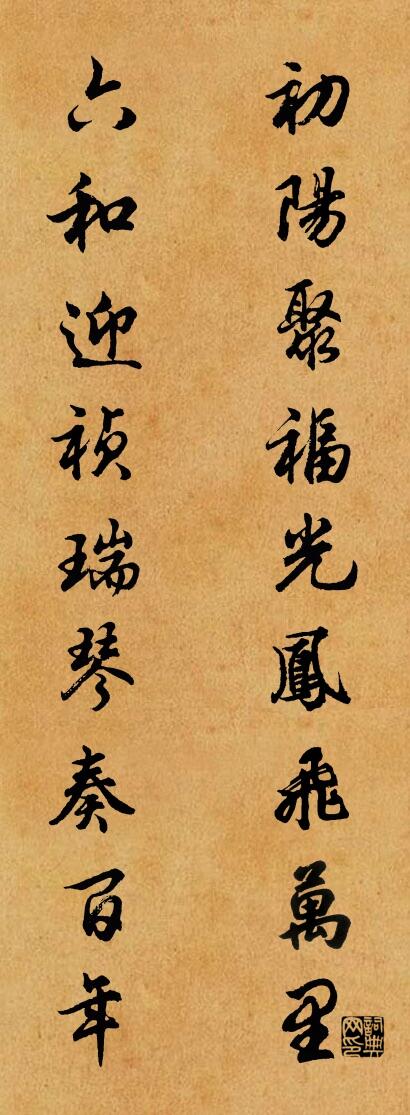 初陽聚福光鳳飛萬里
六和迎禎瑞琴奏百年
詞典網印